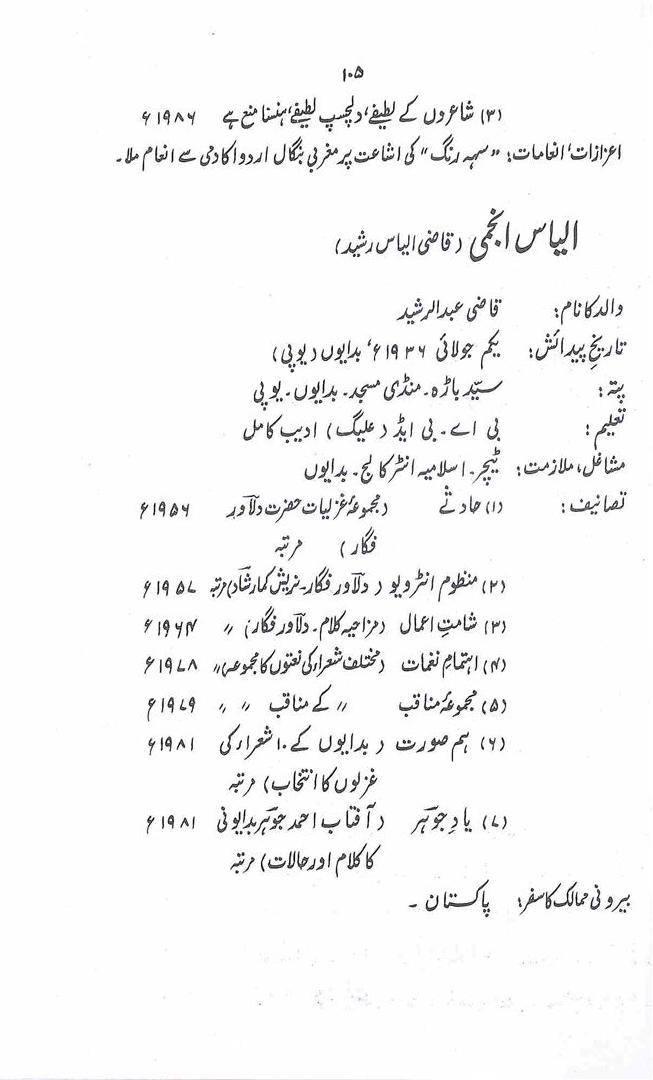 ۱۰۵
(۳) شاعروں کے لطیفے، دلچسپ لطیفے، ہنسنا منع ہے ۱۹۸۶ء
اعزازات، انعامات: "سہہ رنگ" کی اشاعت پر مغربی بنگال اردو اکادمی سے انعام ملا۔
الیاس انجمی (قاضی الیاس رشید)
والد کا نام: قاضی عبدالرشید
تاریخِ پیدائش: یکم جولائی ۱۹۳۶ء، بدایوں (یوپی)
پتہ: سیّد باڑہ۔ منڈی مسجد۔ بدایوں۔ یوپی
تعلیم: بی اے۔ بی ایڈ (علیگ) ادیب کامل
مشاغل، ملازمت: ٹیچر۔ اسلامیہ انٹر کالج۔ بدایوں
تصانیف: (۱) حادثے (مجموعۂ غزلیات حضرت دلاور ۱۹۵۶ء
فگار) مرتبہ
(۲) منظوم انٹرویو (دلاور فگار۔ نریش کمار شاد) مرتبہ ۱۹۵۷ء
(۳) شامتِ اعمال (مزاحیہ کلام۔ دلاور فگار) 〃 ۱۹۶۴ء
(۴) اہتمامِ نغمات (مختلف شعراء کی نعتوں کا مجموعہ) 〃 ۱۹۷۸ء
(۵) مجموعۂ مناقب 〃 کے مناقب 〃 〃 ۱۹۷۹ء
(۶) ہم صورت (بدایوں کے ۱۰ شعراء کی ۱۹۸۱ء
غزلوں کا انتخاب) مرتبہ
(۷) یادِ جوہر (آفتاب احمد جوہر بدایونی ۱۹۸۱ء
کا کلام اور حالات) مرتبہ
بیرونی ممالک کا سفر: پاکستان ۔